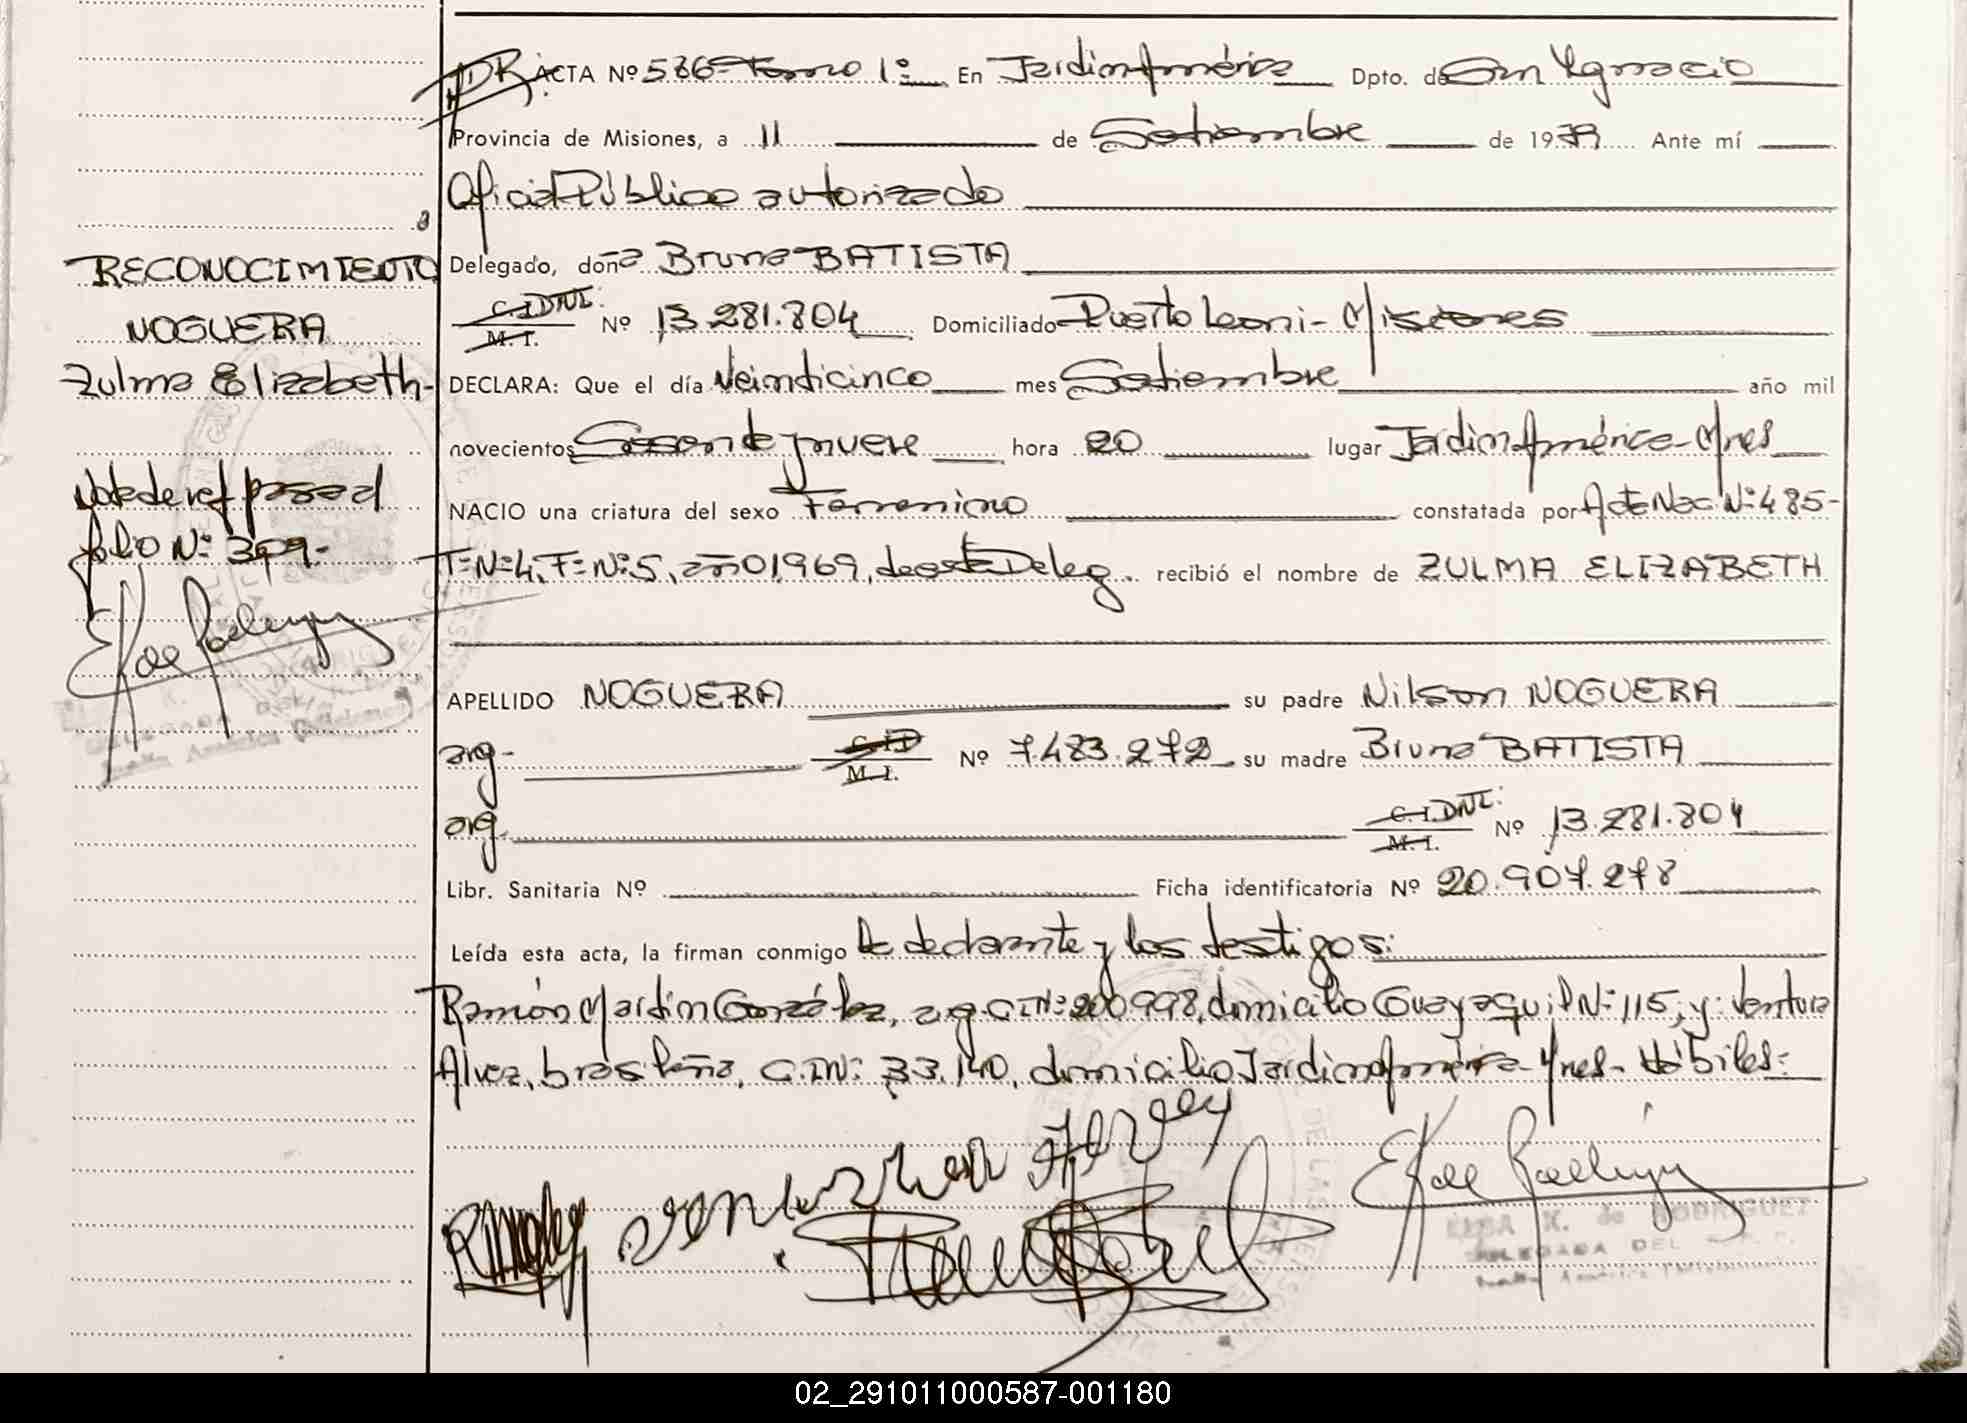 DR ACTA Nº 536- Tomo 1º En Jardin América Dpto. de San Ygnacio
Provincia de Misiones, a 11 de Setiembre de 1979 Ante mí
Oficial Público autorizado
a
Delegado, doña Bruna BATISTA
C.I. DNI. M.I. Nº 13.281.804 Domiciliado Puerto Leoni- Misiones
DECLARA: Que el día Veinticinco mes Setiembre año mil
novecientos Sesenta y nueve hora 20 lugar Jardin América- Mnes
NACIO una criatura del sexo Femenino constatada por Acta Nac. Nº 485-
Tº Nº 4, Fº Nº 5, año 1969, de esta Deleg. recibió el nombre de ZULMA ELIZABETH
APELLIDO NOGUERA su padre Nilson NOGUERA
arg- C.I.D M.I. Nº 7.483.272 su madre Bruna BATISTA
arg. C.I. DNI. M.I. Nº 13.281.804
Libr. Sanitaria Nº Ficha identificatoria Nº 20.907.278
Leída esta acta, la firman conmigo la declarante y los testigos:
Ramón Martin González, arg. C.I Nº 200.998, domicilio Guayaquil Nº 115; y: Ventura
Alvez, brasileña, C.I Nº: 33.140, domicilio Jardin América- Mnes- Hábiles:
RECONOCIMIENTO
NOGUERA
Zulma Elizabeth-
Nota de ref pasa al
folio Nº 399.-
ELSA K. de RODRIGUEZ
DELEGADA DEL
02_291011000587-001180